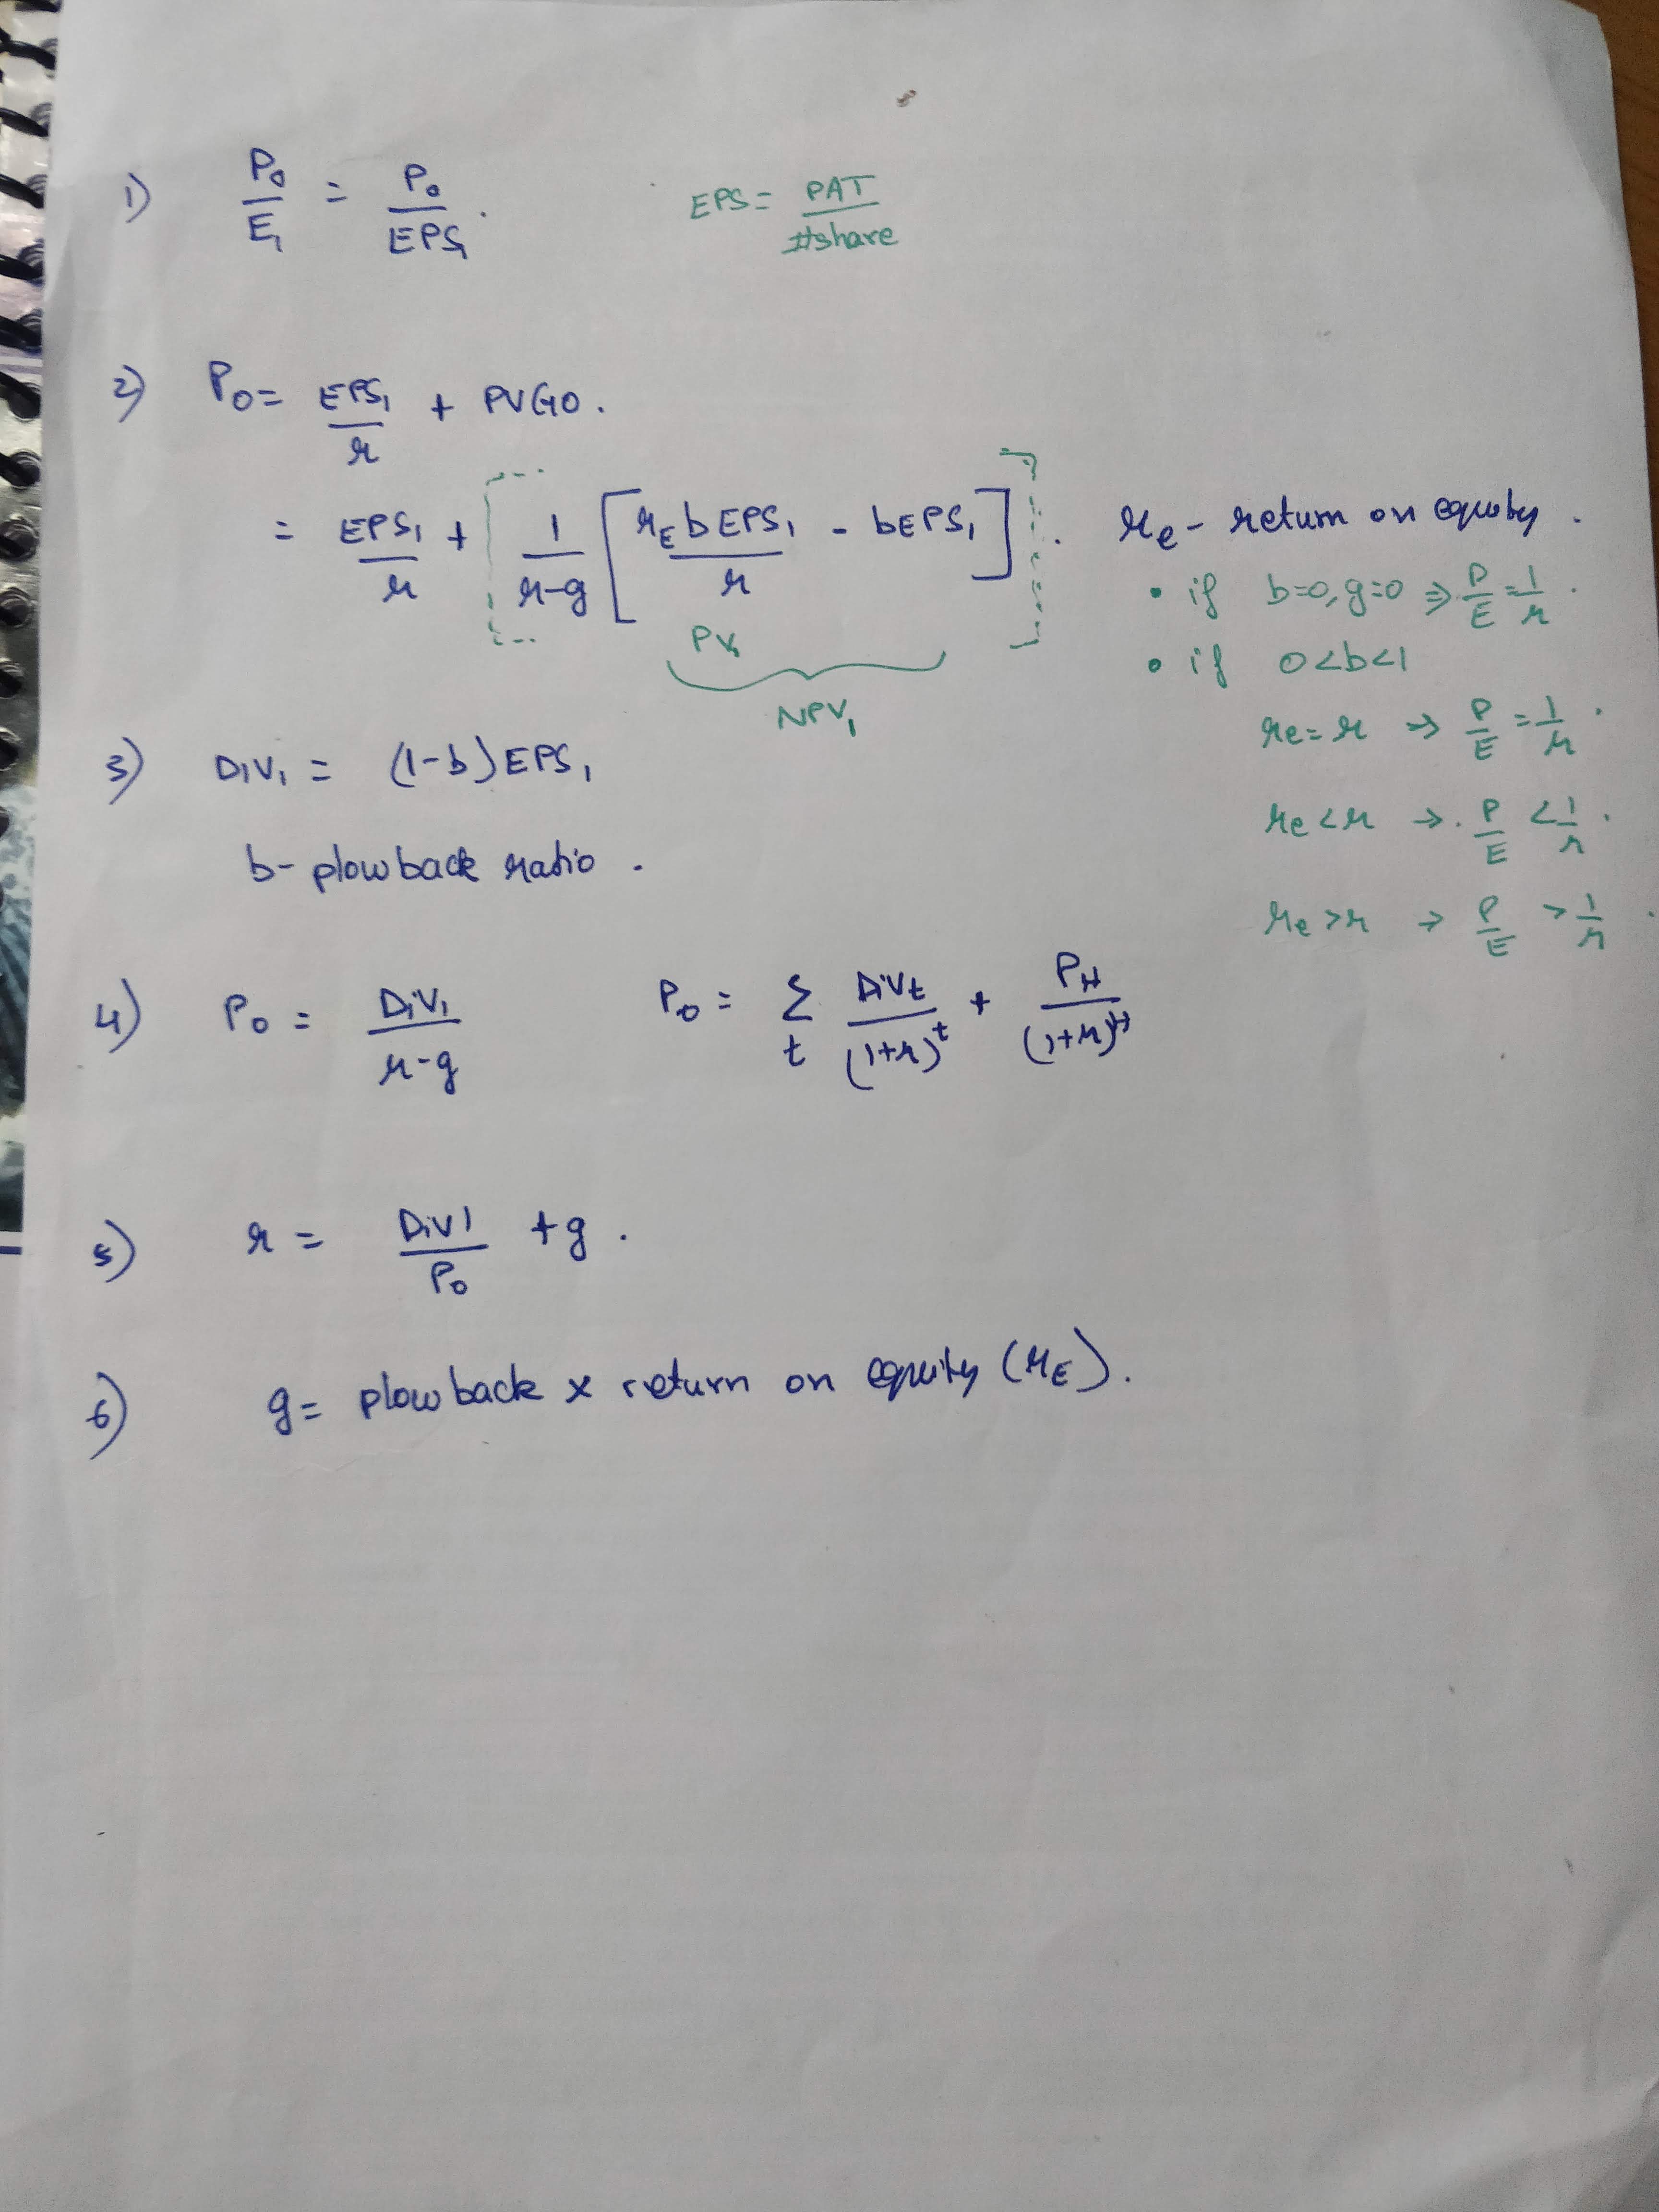 1) P₀/E₁ = P₀/EPS₁. EPS = PAT/#share
2) P₀ = EPS₁/r + PVGO.
= EPS₁/r + [1/(r-g) [r_E b EPS₁/r - bEPS₁]]. r_e - return on equity.
PV₁
NPV₁
• if b=0, g=0 ⇒ P/E = 1/r.
• if 0<b<1
r_e = r → P/E = 1/r.
r_e < r → P/E < 1/r.
r_e > r → P/E > 1/r.
3) DIV₁ = (1-b)EPS₁
b- plowback ratio.
4) P₀ = DiV₁/(r-g) P₀ = Σ_t DiVt/(1+r)^t + P_H/(1+r)^H
5) r = DiV1/P₀ + g.
6) g = plowback x return on equity (r_E).